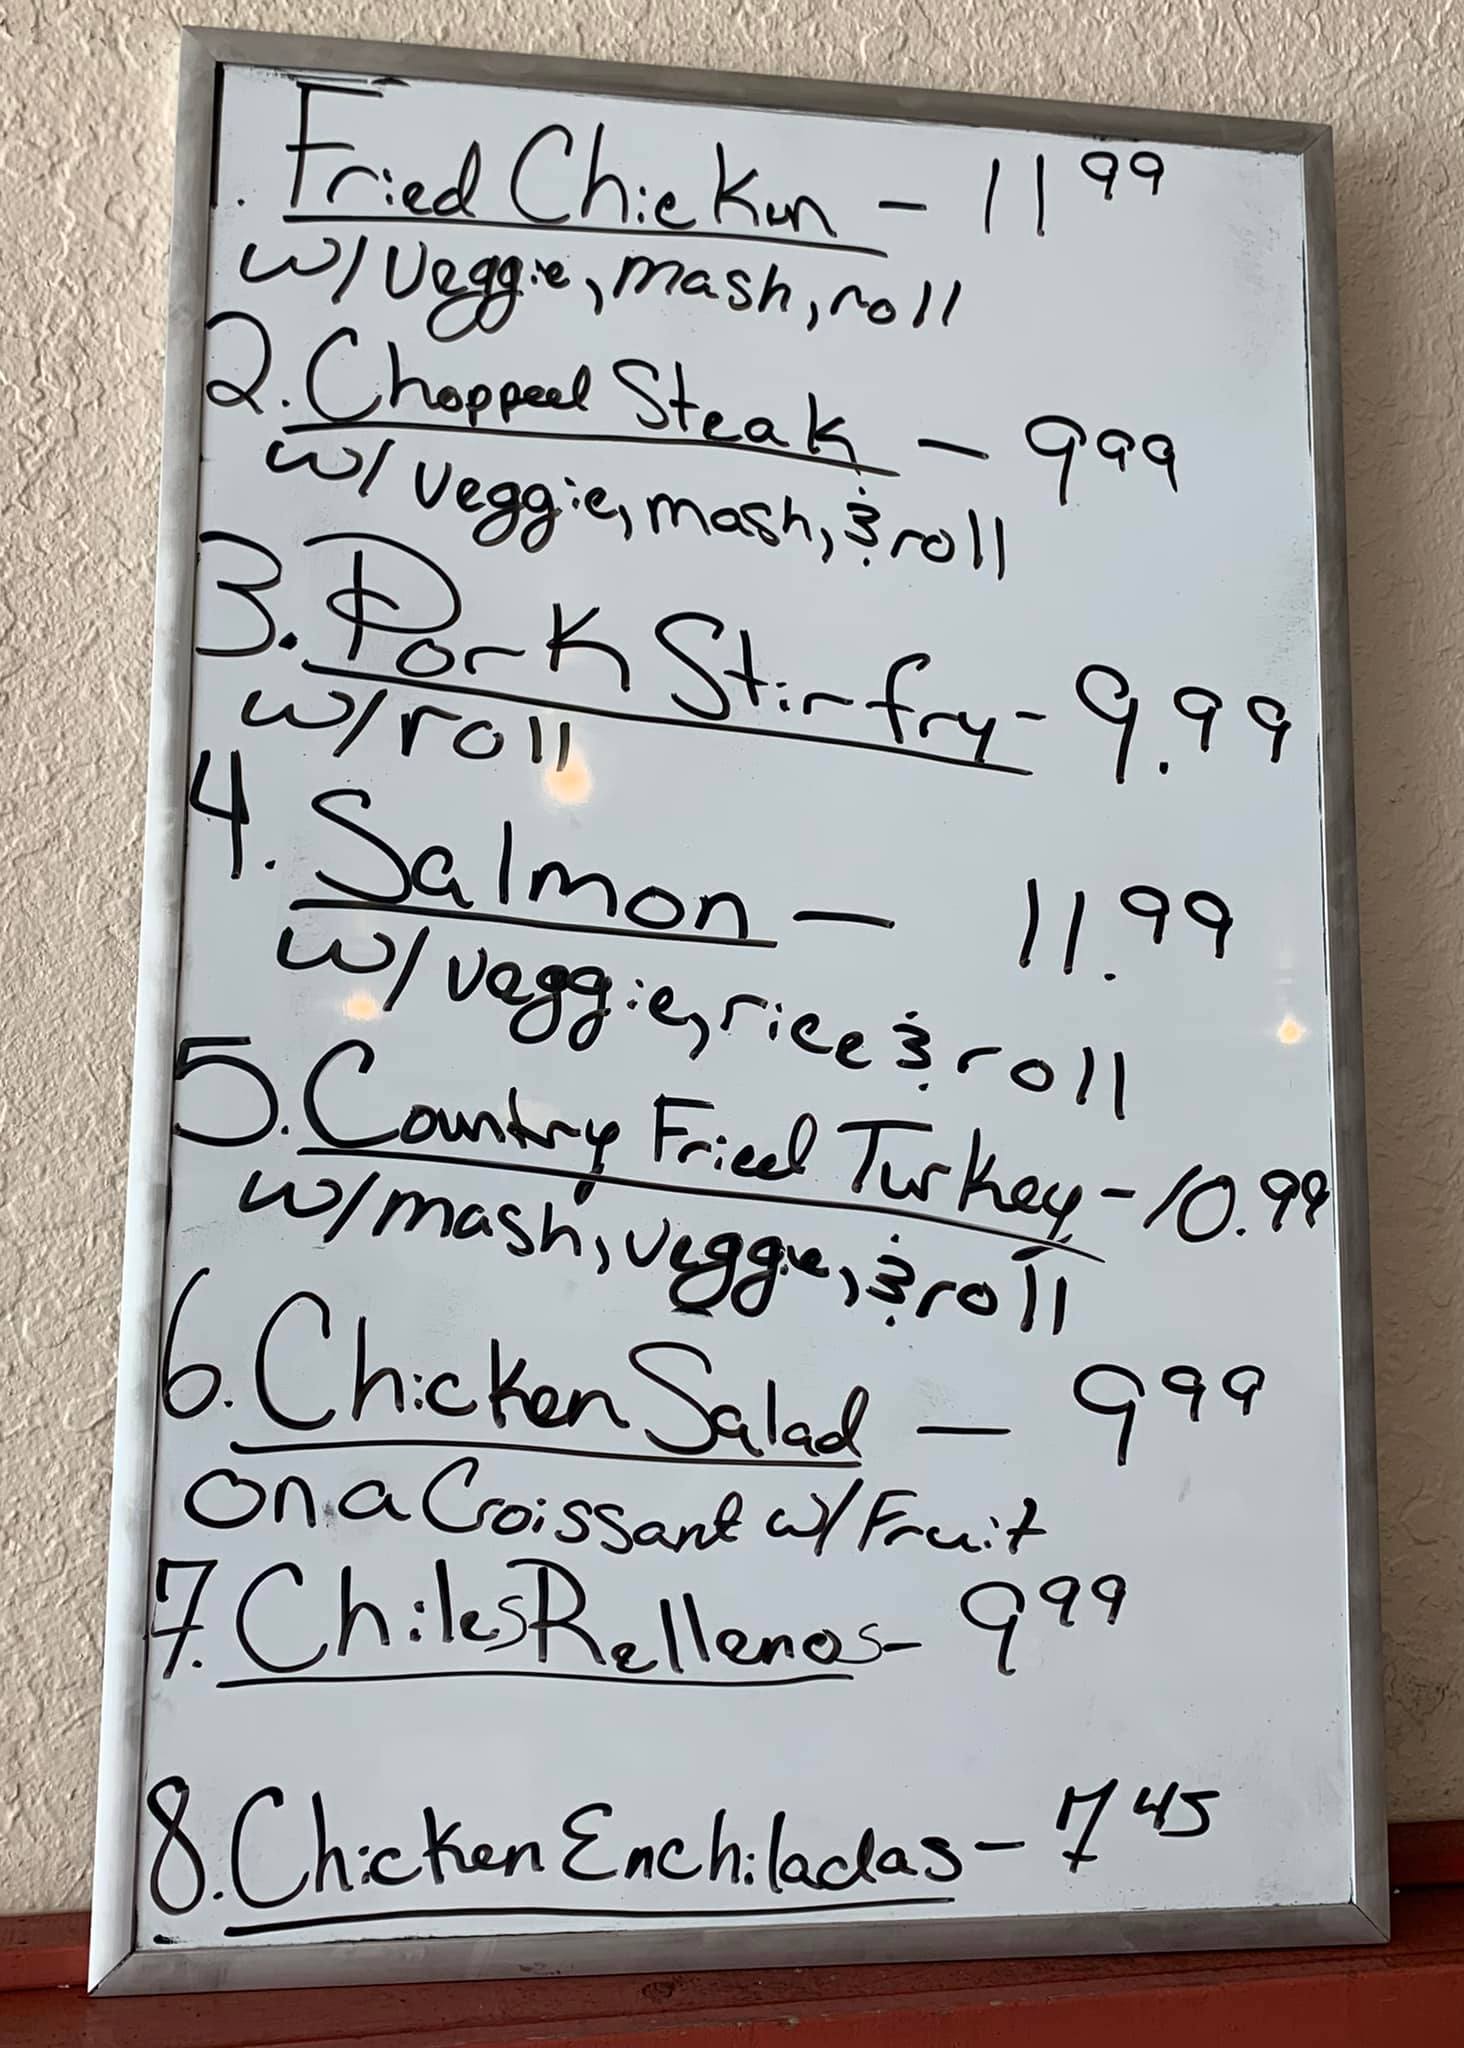 1. Fried Chicken - 11 99
w/ Veggie, mash, roll
2. Chopped Steak - 9 99
w/ veggie, mash, & roll
3. Pork Stir fry - 9.99
w/ roll
4. Salmon - 11.99
w/ veggie, rice & roll
5. Country Fried Turkey - 10.99
w/ mash, veggie, & roll
6. Chicken Salad - 9 99
on a Croissant w/ Fruit
7. Chiles Rellenos - 9 99
8. Chicken Enchiladas - 7 45